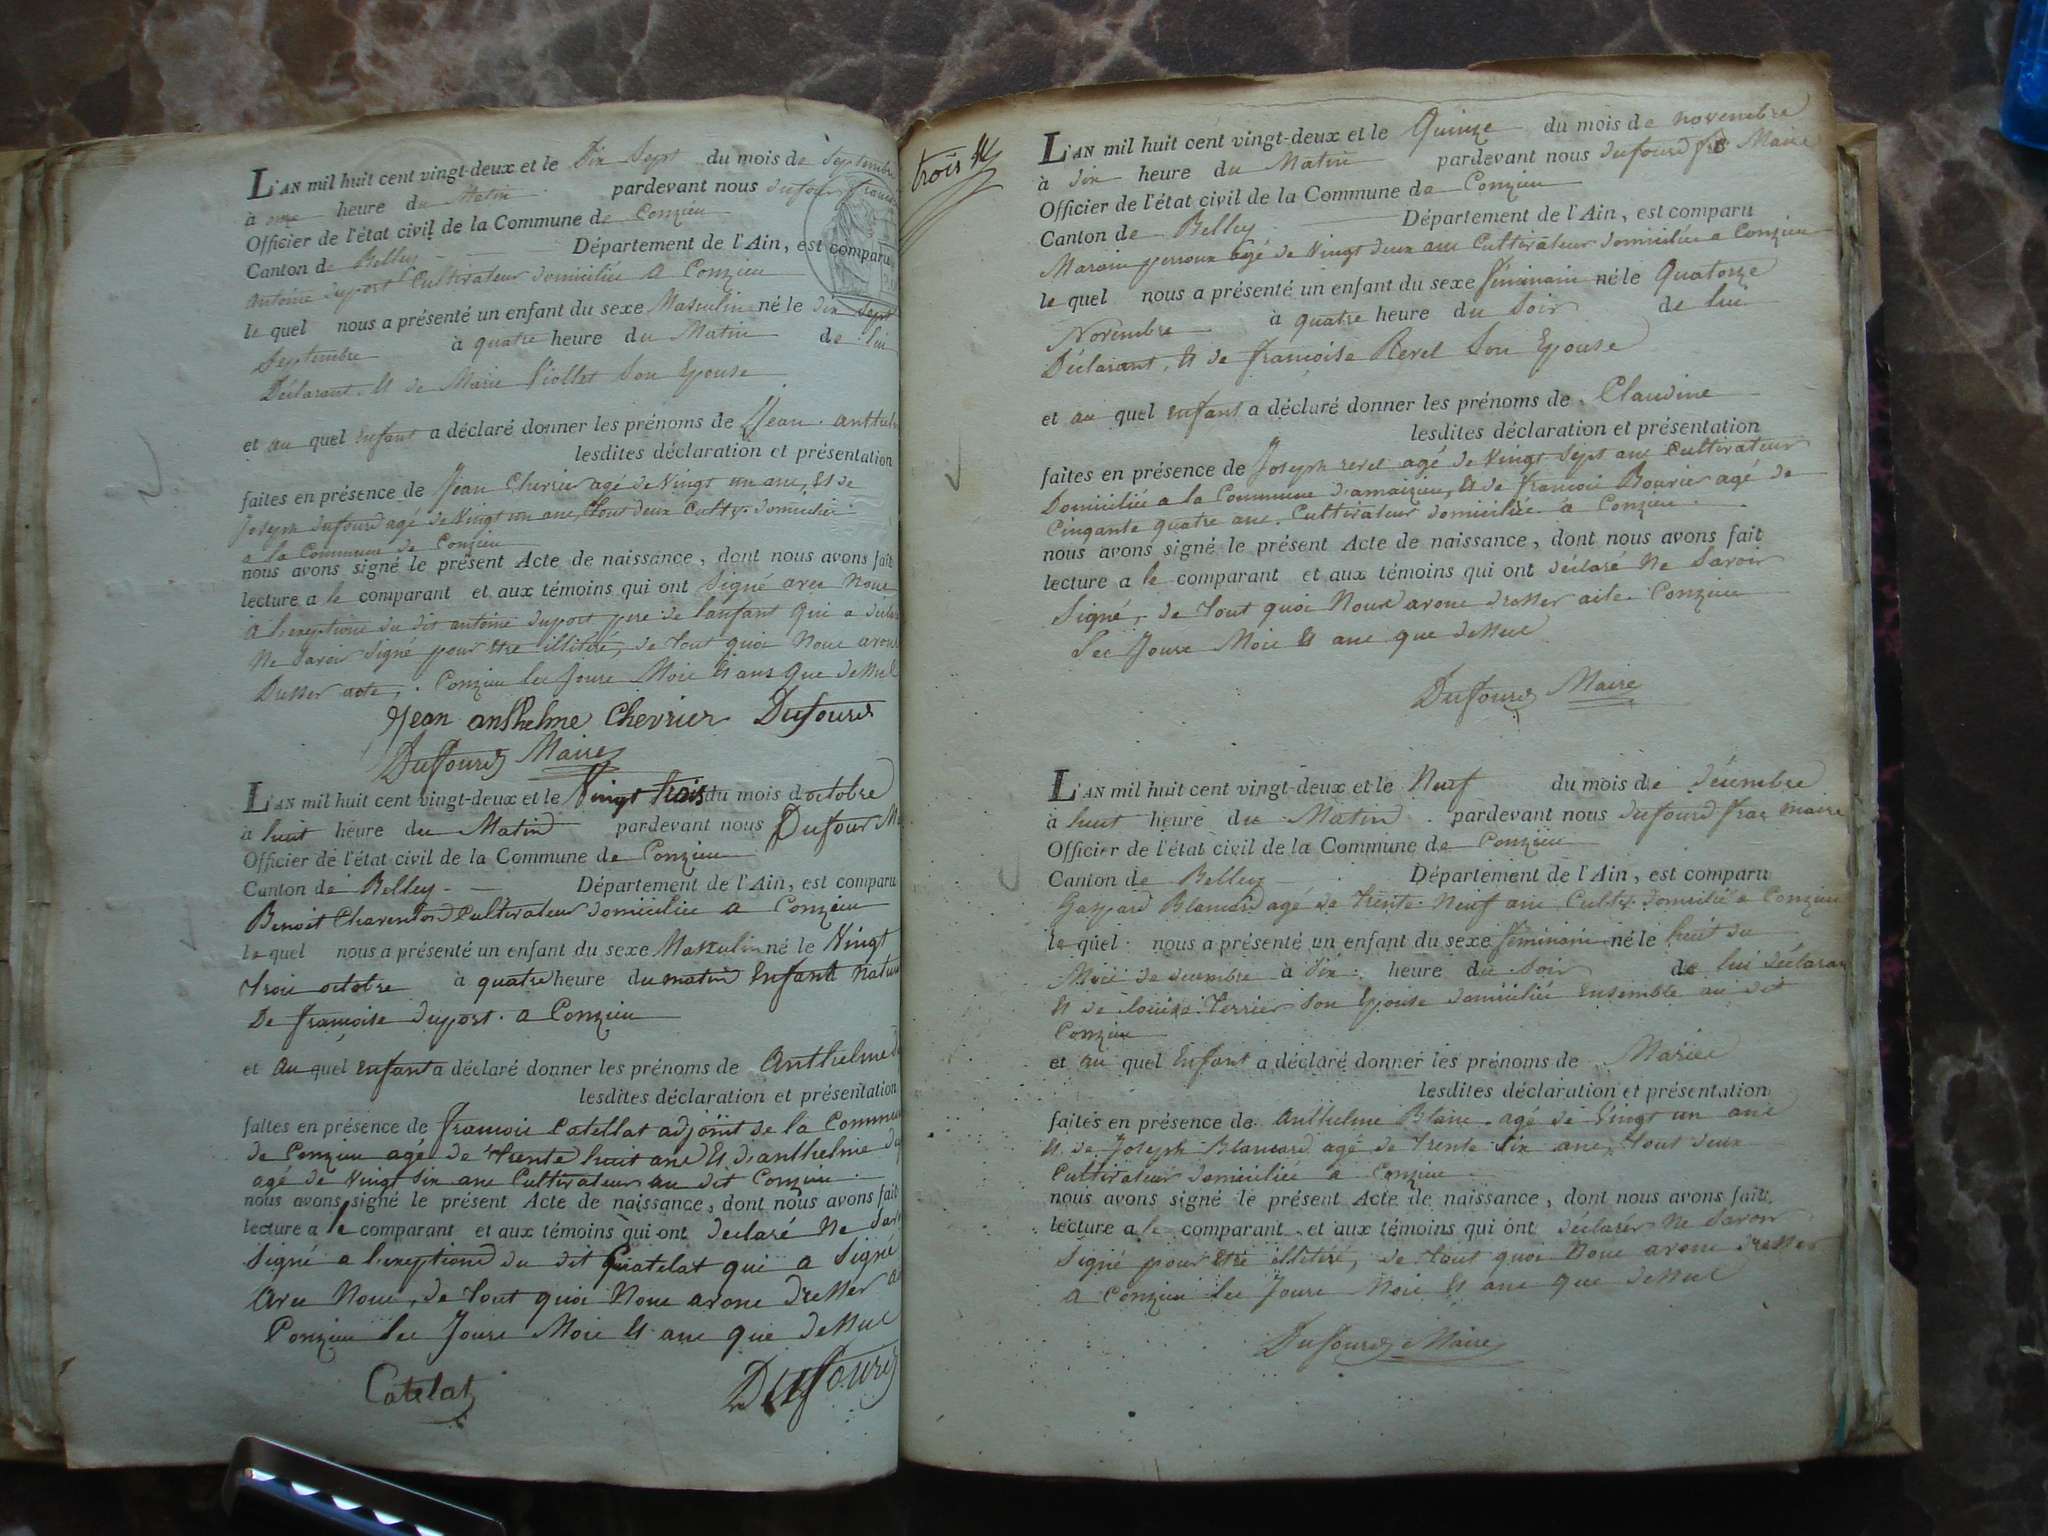 L'AN mil huit cent vingt-deux et le Dix Sept du mois de Septembre
à onze heure du Matin pardevant nous dufour
Officier de l'état civil de la Commune de Conzieu
Canton de Belley Département de l'Ain, est comparu
antoine duport Cultivateur domicilié a Conzieu
le quel nous a présenté un enfant du sexe Masculin né le dix Sept
Septembre à quatre heure du Matin de Lui
Déclarant, Et de Marie Viollet Son Epouse
et au quel Enfant a déclaré donner les prénoms de Jean
lesdites déclaration et présentation
faites en présence de Jean Chevrier agé de Vingt un ans, Et de
Joseph dufourd agé de Vingt un ans, tout deux Cultr domicilié
a la Commune de Conzieu
nous avons signé le présent Acte de naissance, dont nous avons fait
lecture a le comparant et aux témoins qui ont Signé avec Nous
A l'exeptione du dit antoine duport pere de lanfant Qui a
Ne Savoir Signé pour Etre illitéré, de tout quoi Nous avons
Dresser acte, Conzieu les Jours Mois Et ans Que dessus
Jean anthelme Chevrier Dufourd
Duffourd Maire
L'AN mil huit cent vingt-deux et le Vingt trois du mois d'octobre
à huit heure du Matin pardevant nous Dufour
Officier de l'état civil de la Commune de Conzieu
Canton de Belley Département de l'Ain, est comparu
Benoit Charentond Cultivateur domicilie a Conzieu
le quel nous a présenté un enfant du sexe Masculin né le Vingt
trois octobre à quatre heure du matin Enfant
De francoise duport a Conzieu
et au quel enfant a déclaré donner les prénoms de Anthelme
lesdites déclaration et présentation
faites en présence de francois Catellat adjoint de la Commune
de Conzieu agé de trente huit ans Et d'anthelme
agé de Vingt Six ans Cultivateur au dit Conzieu
nous avons signé le présent Acte de naissance, dont nous avons fait
lecture a le comparant et aux témoins qui ont declaré Ne
Signé a l'exeptiond du dit Catelat qui a Signé
Avec Nous, de tout quoi Nous avons Dresser
Conzieu les Jours Mois Et ans que dessus
Catelat Duffourd
trois
L'AN mil huit cent vingt-deux et le Quinze du mois de novembre
à dix heure du Matin pardevant nous dufourd Maire
Officier de l'état civil de la Commune de Conzieu
Canton de Belley Département de l'Ain, est comparu
Marain perroux agé de Vingt deux ans Cultivateur domicilie a Conzieu
le quel nous a présenté un enfant du sexe féminin né le Quatorze
Novembre à quatre heure du Soir de lui
Déclarant, Et de francoise Revel Son Epouse
et au quel enfant a déclaré donner les prénoms de Claudine
lesdites déclaration et présentation
faites en présence de Joseph revel agé de Vingt Sept ans Cultivateur
Domicilié a la Commune Et de francois Bovier agé de
Cinqante quatre ans Cultivateur domicilie a Conzieu
nous avons signé le présent Acte de naissance, dont nous avons fait
lecture a le comparant et aux témoins qui ont déclaré Ne Savoir
Signé, de tout quoi Nous avons dresser Conzieu
Les Jours Mois Et ans que dessus
Duffourd Maire
L'AN mil huit cent vingt-deux et le Neuf du mois de décembre
à huit heure du Matin pardevant nous dufourd maire
Officier de l'état civil de la Commune de Conzieu
Canton de Belley Département de l'Ain, est comparu
Gaspard Blancard agé de trente Neuf ans Cultr domicilié a Conzieu
le quel nous a présenté un enfant du sexe féminin né le huit du
Mois de decembre à Six heure du Soir de lui déclarant
Et de Terrier Son Epouse domicilié Ensemble au dit
Conzieu
et au quel Enfant a déclaré donner les prénoms de Marie
lesdites déclaration et présentation
faites en présence de anthelme Blanc agé de Vingt un ans
Et de Joseph Blancard agé de trente Six ans, tout deux
Cultivateur domicilié a Conzieu
nous avons signé le présent Acte de naissance, dont nous avons fait
lecture a le comparant et aux témoins qui ont déclarér Ne Savoir
Signé pour Etre illitéré, de tout quoi Nous avons dresser
A Conzieu les Jours Mois Et ans que dessus
Duffourd Maire